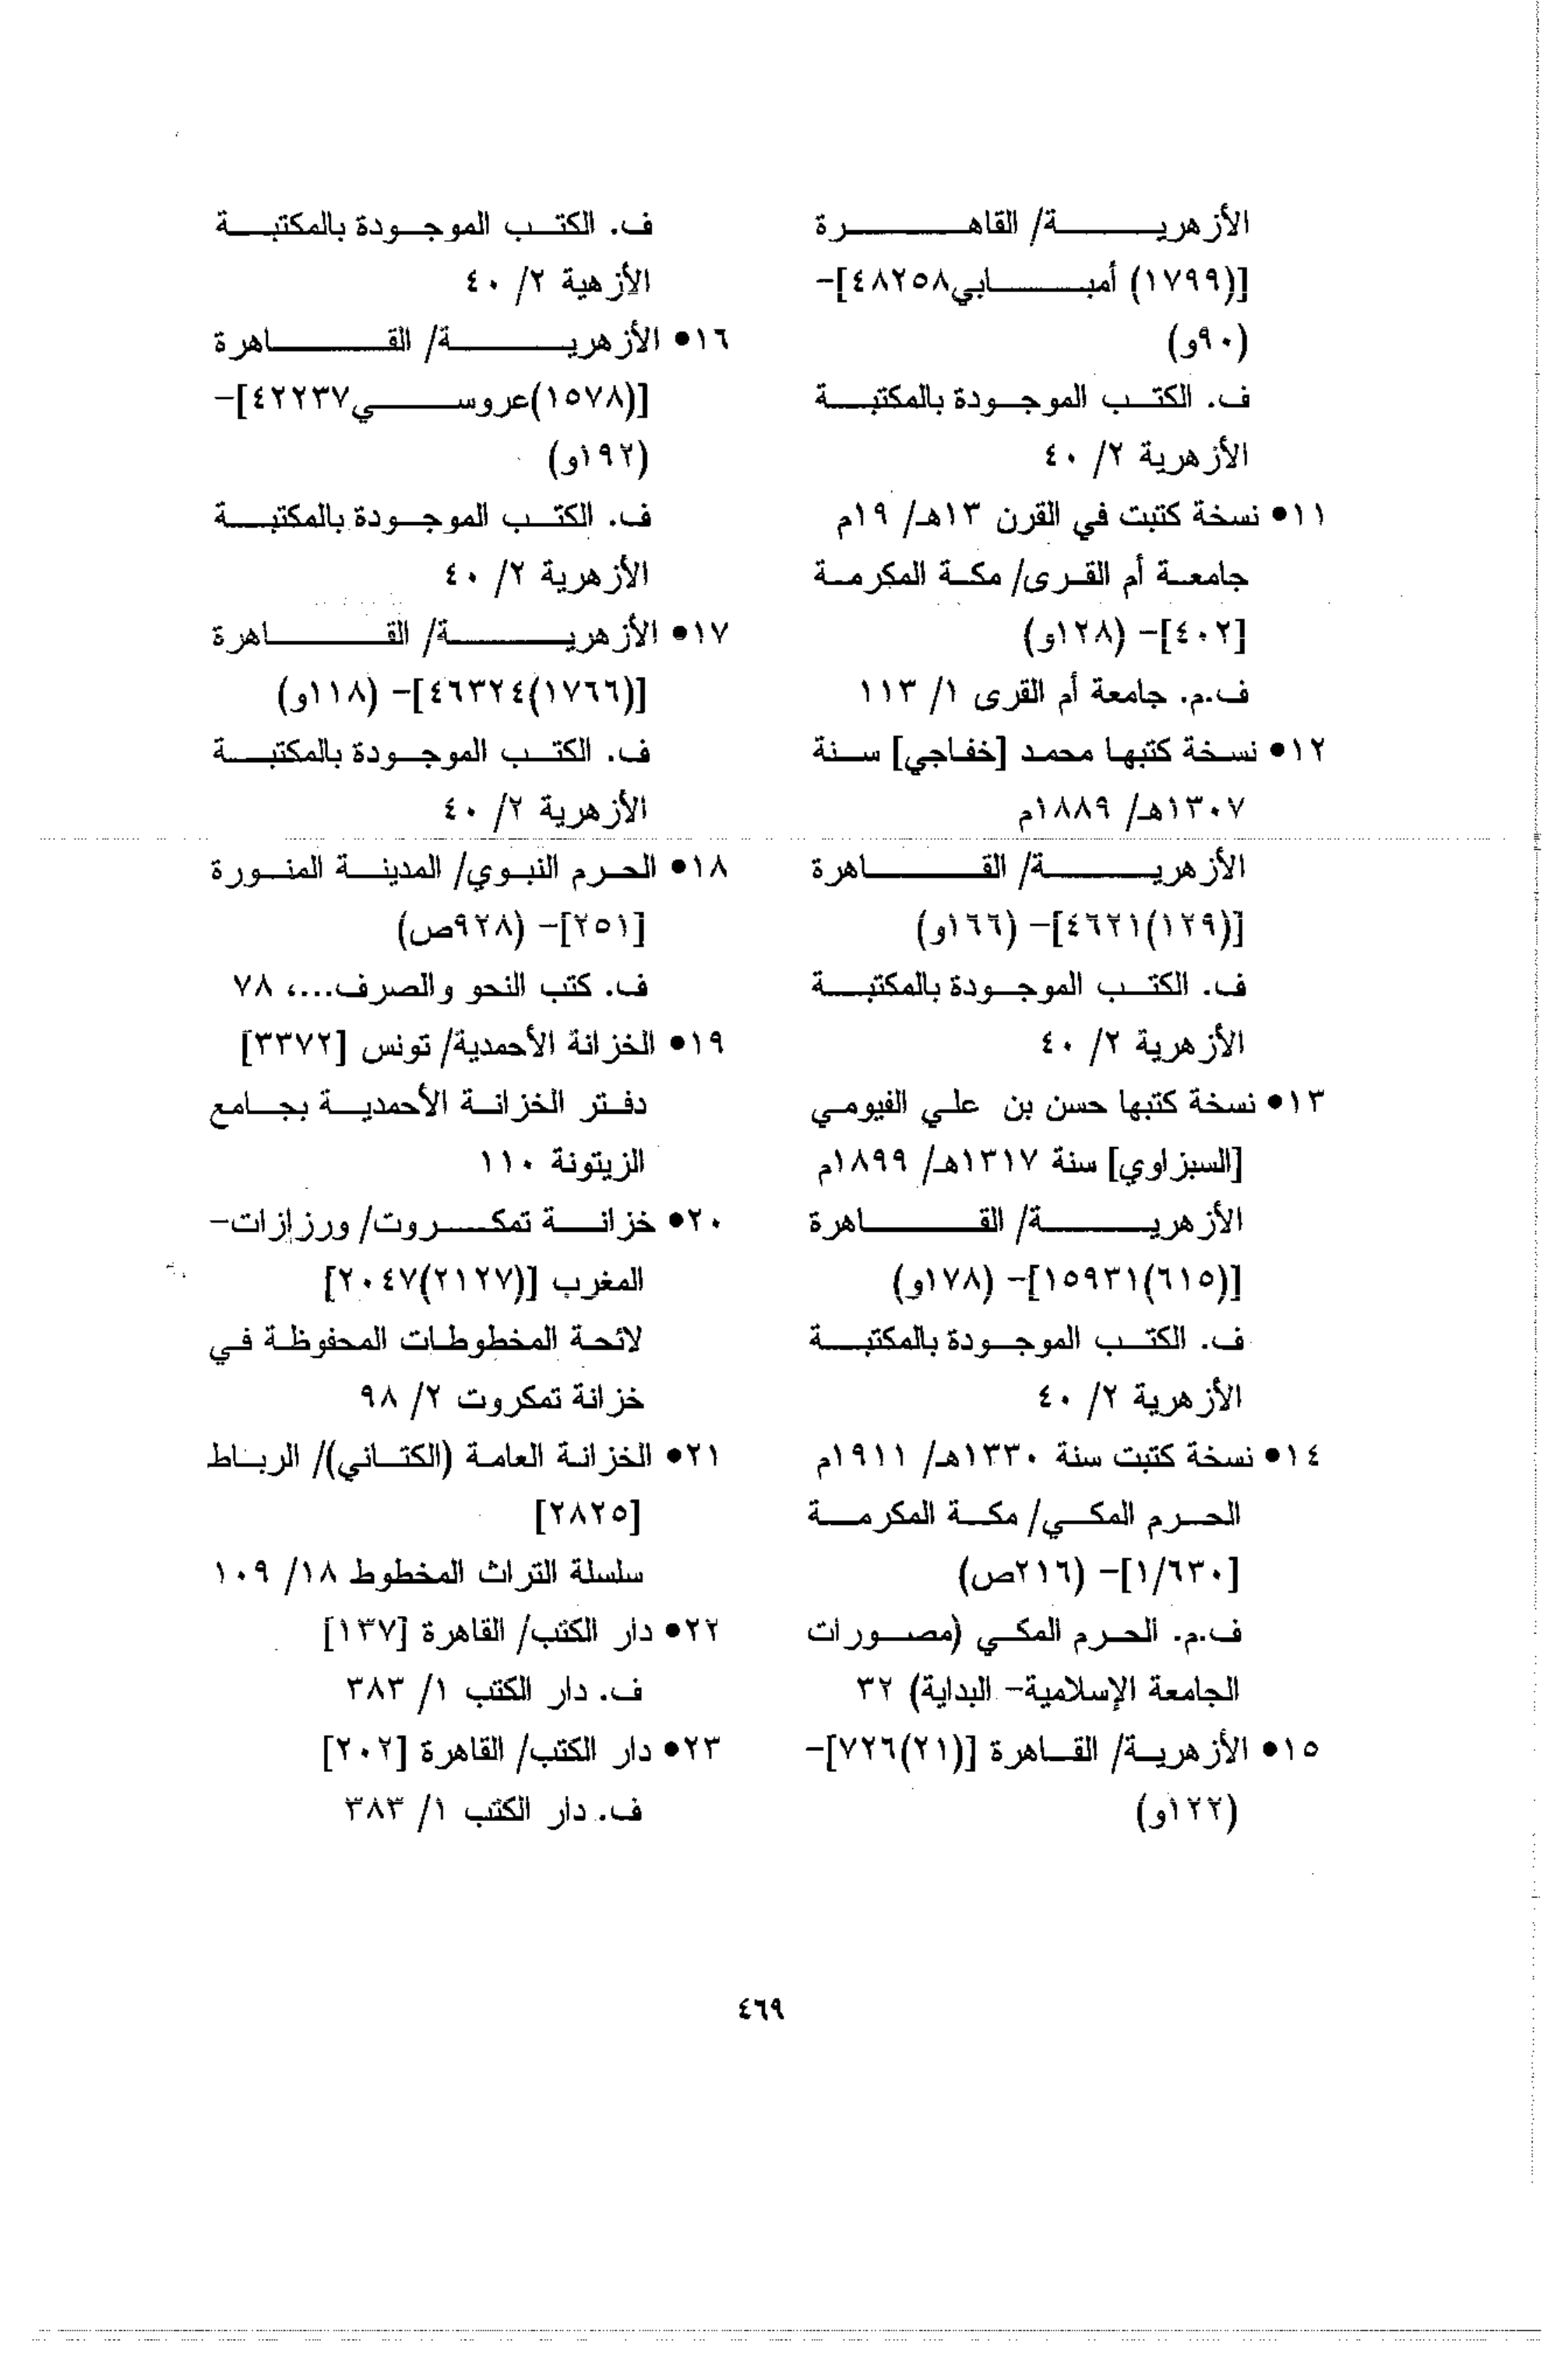 الأزهرية/ القاهرة
[(١٧٩٩) أمبابي٤٨٢٥٨]-
(٩٠و)
ف. الكتب الموجودة بالمكتبة
الأزهرية ٢/ ٤٠
١١• نسخة كتبت في القرن ١٣هـ/ ١٩م
جامعة أم القرى/ مكة المكرمة
[٤٠٢]- (١٢٨و)
ف.م. جامعة أم القرى ١/ ١١٣
١٢• نسخة كتبها محمد [خفاجي] سنة
١٣٠٧هـ/ ١٨٨٩م
الأزهرية/ القاهرة
[(١٢٩)٤٦٢١]- (١٦٦و)
ف. الكتب الموجودة بالمكتبة
الأزهرية ٢/ ٤٠
١٣• نسخة كتبها حسن بن علي الفيومي
[السبزاوي] سنة ١٣١٧هـ/ ١٨٩٩م
الأزهرية/ القاهرة
[(٦١٥)١٥٩٣١]- (١٧٨و)
ف. الكتب الموجودة بالمكتبة
الأزهرية ٢/ ٤٠
١٤• نسخة كتبت سنة ١٣٣٠هـ/ ١٩١١م
الحرم المكي/ مكة المكرمة
[١/٦٣٠]- (٢١٦ص)
ف.م. الحرم المكي (مصورات
الجامعة الإسلامية- البداية) ٣٢
١٥• الأزهرية/ القاهرة [(٢١)٧٢٦]-
(١٢٢و)
ف. الكتب الموجودة بالمكتبة
الأزهية ٢/ ٤٠
١٦• الأزهرية/ القاهرة
[(١٥٧٨)عروسي٤٢٢٣٧]-
(١٩٢و)
ف. الكتب الموجودة بالمكتبة
الأزهرية ٢/ ٤٠
١٧• الأزهرية/ القاهرة
[(١٧٦٦)٤٦٣٢٤]- (١١٨و)
ف. الكتب الموجودة بالمكتبة
الأزهرية ٢/ ٤٠
١٨• الحرم النبوي/ المدينة المنورة
[٢٥١]- (٩٢٨ص)
ف. كتب النحو والصرف...، ٧٨
١٩• الخزانة الأحمدية/ تونس [٣٣٧٢]
دفتر الخزانة الأحمدية بجامع
الزيتونة ١١٠
٢٠• خزانة تمكروت/ ورزازات-
المغرب [(٢١٢٧)٢٠٤٧]
لائحة المخطوطات المحفوظة في
خزانة تمكروت ٢/ ٩٨
٢١• الخزانة العامة (الكتاني)/ الرباط
[٢٨٢٥]
سلسلة التراث المخطوط ١٨/ ١٠٩
٢٢• دار الكتب/ القاهرة [١٣٧]
ف. دار الكتب ١/ ٣٨٣
٢٣• دار الكتب/ القاهرة [٢٠٢]
ف. دار الكتب ١/ ٣٨٣
٤٦٩